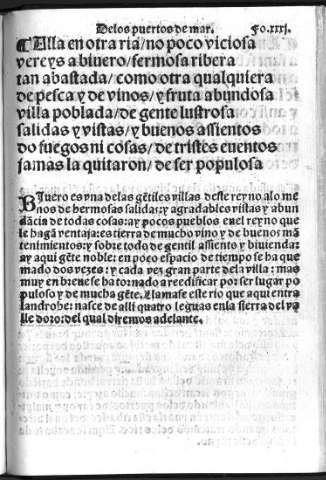 De los puertos de mar. Fo.xxxj.
¶ Alla en otra ria/no poco viciosa
vereys a biuero/fermosa ribera
tan abastada/como otra qualquiera
de pesca y de vinos/y fruta abundosa
villa poblada/de gente lustrosa
salidas y vistas/y buenos assientos
do fuegos ni cosas/de tristes euentos
jamas la quitaron/de ser populosa
Biuero es vna delas gẽtiles villas deste reyno alo me
nos de hermosao salidas: y agradables vistas y abun
dãcia de todas cosas: ay pocos pueblos en el reyno que
le hagã ventaja: es tierra de mucho vino y de buenos mã
tenimientos: y sobre todo de gentil assiento y biuienda:
ay aqui gẽte noble: en poco espacio de tiempo se ha que
mado dos vezes: y cada vez gran parte dela villa: mas
muy en breue se ha tornado a reedificar por ser lugar po
puloso y de mucha gẽte. Llamase este rio que aqui entra
landrobe: nasce de alli quatro leguas en la sierra del va
lle d oro: del qual diremos adelante.